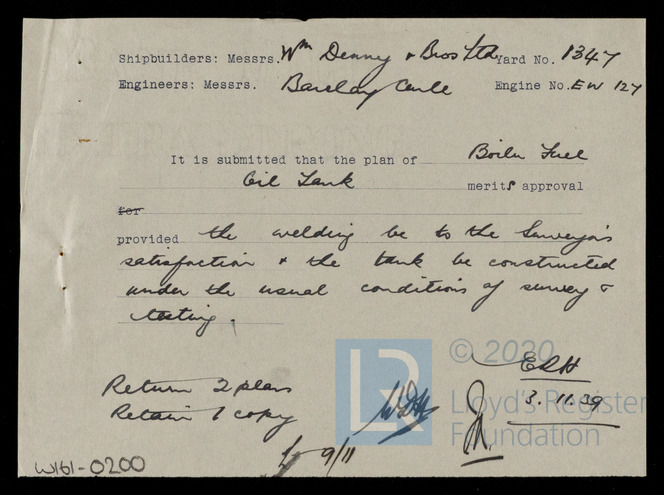 Shipbuilders: Messrs. Wm Denny & Bros Ltd Yard No. 1347
Engineers: Messrs. Barclay Curle Engine No. EW 127
It is submitted that the plan of Boiler Fuel
Oil Tank merits approval
for
provided the welding be to the Surveyors
satisfaction & the tank be constructed
under the usual conditions of survey &
testing.
© 2020
Lloyd's Register
Foundation
LR
Return 2 plans
Retain 1 copy
3.11.39
9/11
W161-0200